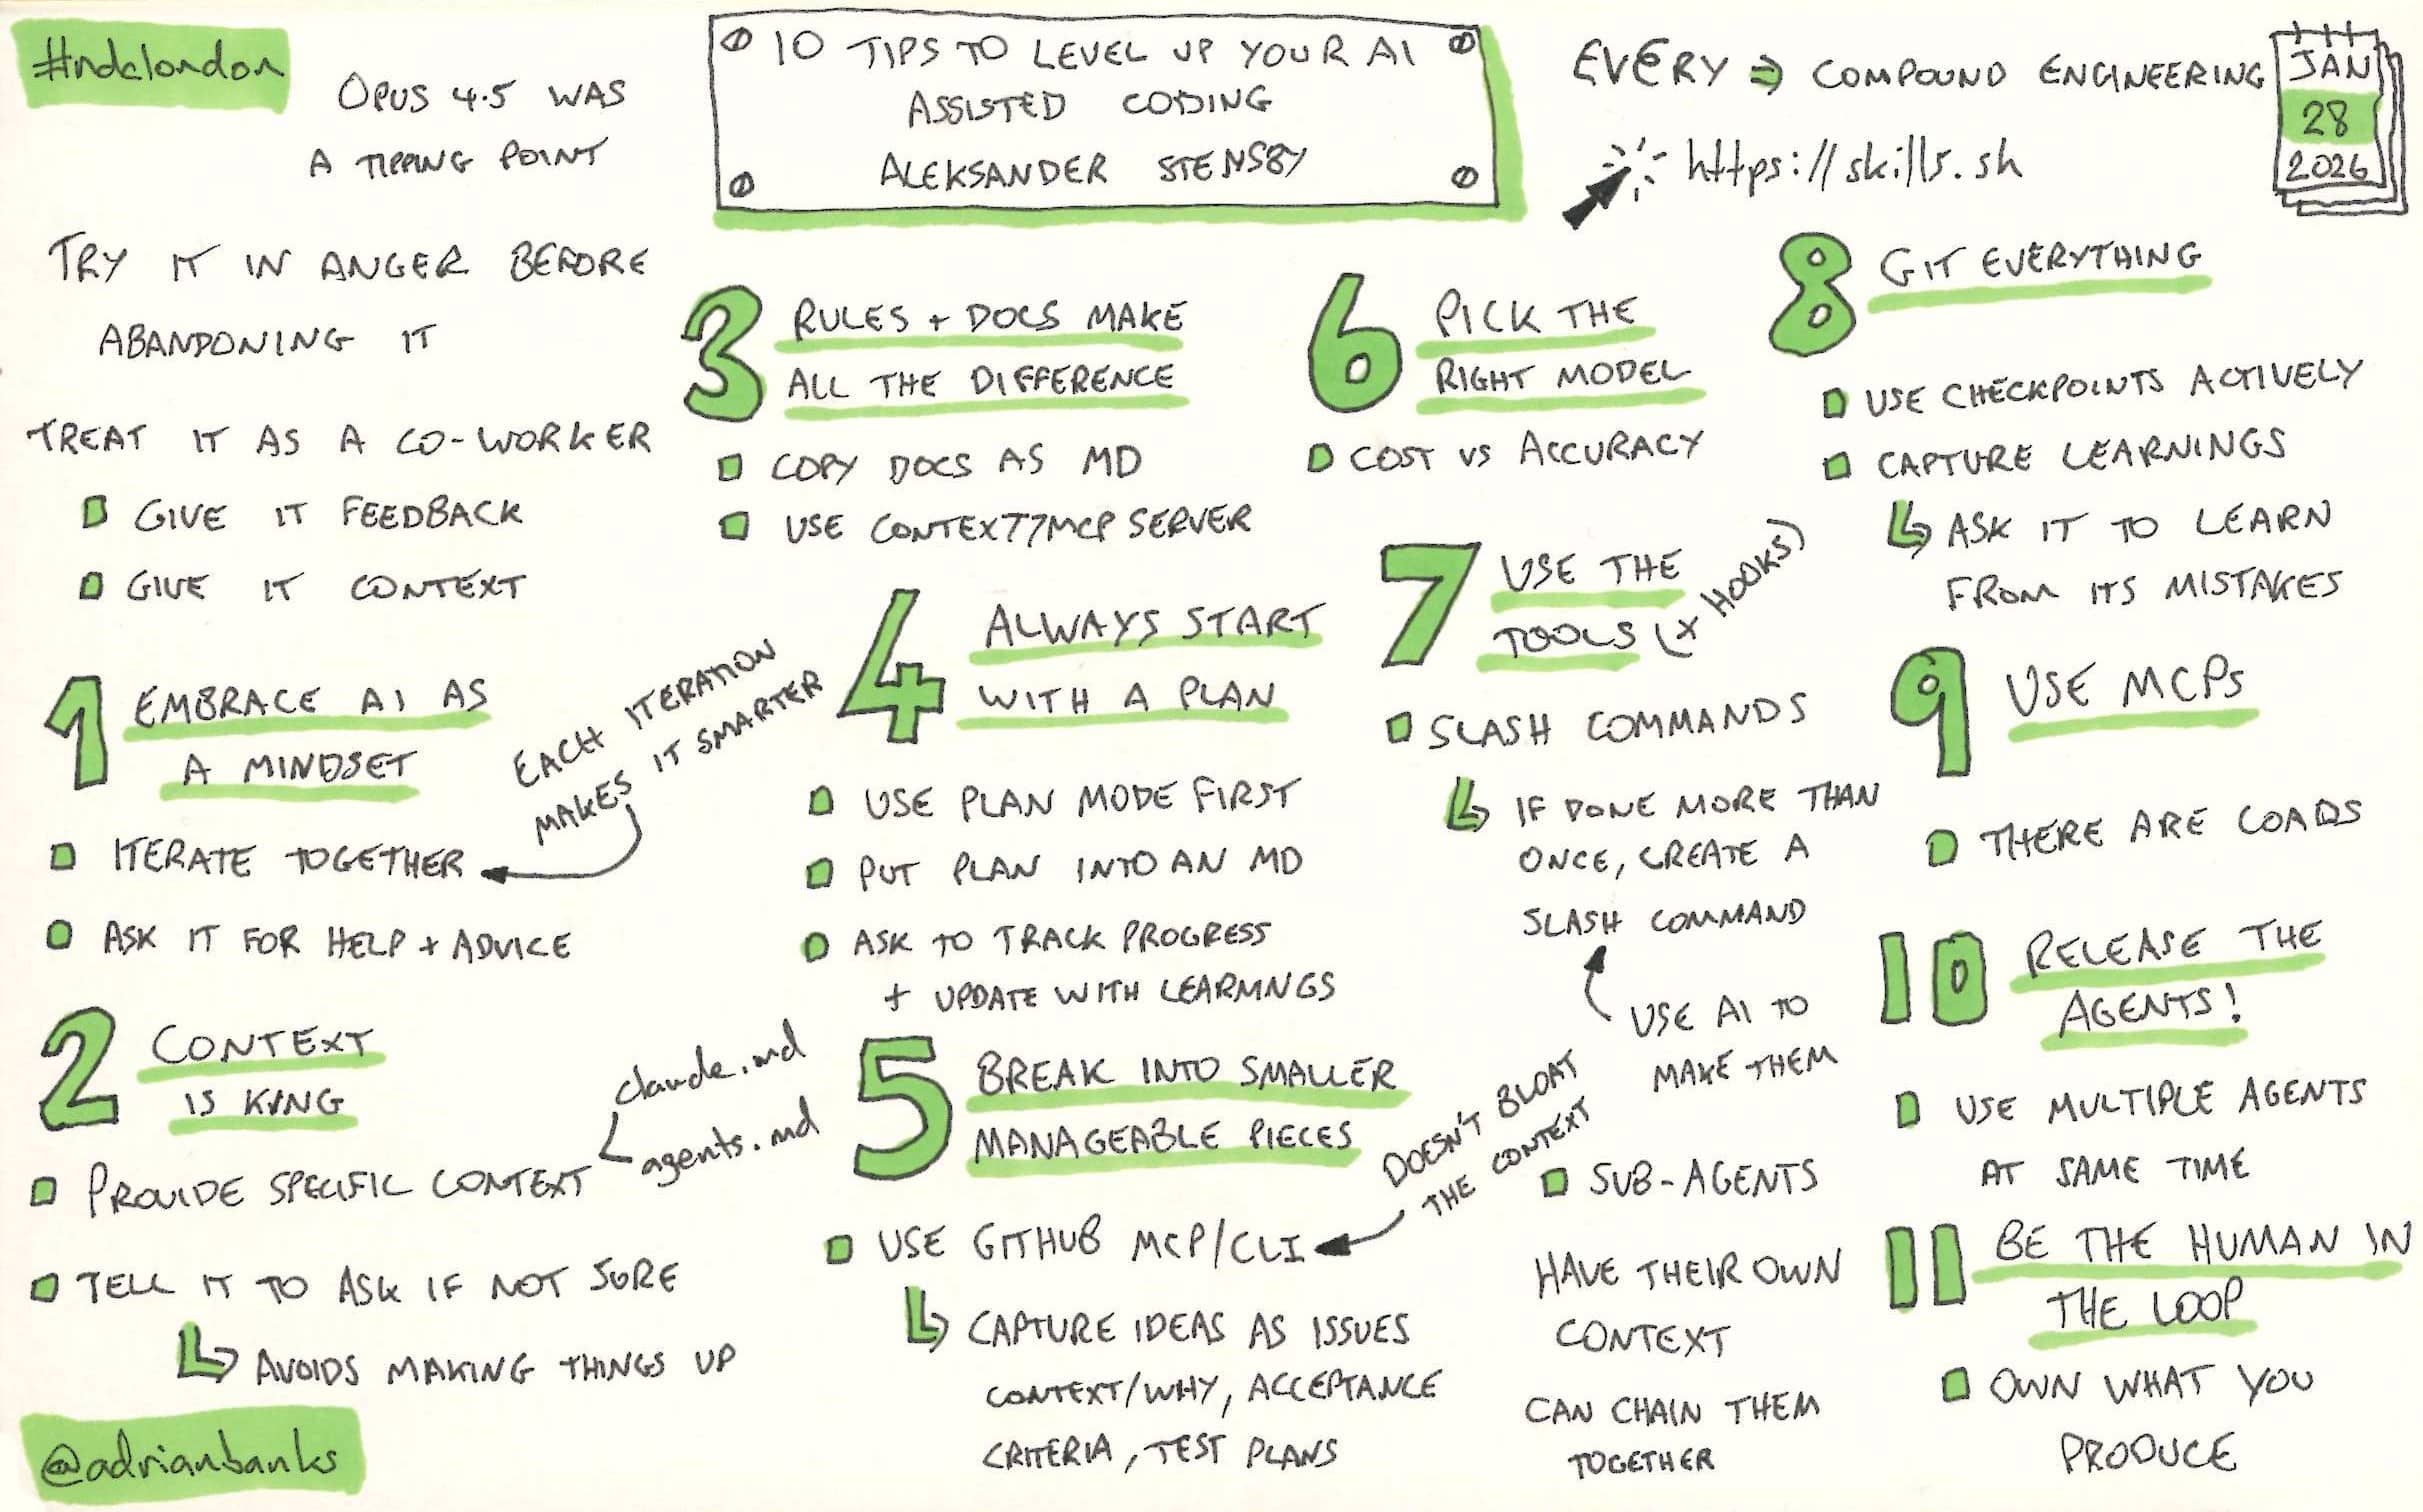 #ndclondon
OPUS 4.5 WAS
A TIPPING POINT
10 TIPS TO LEVEL UP YOUR AI
ASSISTED CODING
ALEKSANDER STENSBY
EVERY ⇒ COMPOUND ENGINEERING
https://skills.sh
JAN
28
2026
TRY IT IN ANGER BEFORE
ABANDONING IT
TREAT IT AS A CO-WORKER
GIVE IT FEEDBACK
GIVE IT CONTEXT
1 EMBRACE AI AS
A MINDSET
ITERATE TOGETHER
EACH ITERATION
MAKES IT SMARTER
ASK IT FOR HELP + ADVICE
2 CONTEXT
IS KING
PROVIDE SPECIFIC CONTEXT
claude.md
agents.md
TELL IT TO ASK IF NOT SURE
AVOIDS MAKING THINGS UP
@adrianbanks
3 RULES + DOCS MAKE
ALL THE DIFFERENCE
COPY DOCS AS MD
USE CONTEXT7 MCP SERVER
4 ALWAYS START
WITH A PLAN
USE PLAN MODE FIRST
PUT PLAN INTO AN MD
ASK TO TRACK PROGRESS
+ UPDATE WITH LEARNINGS
5 BREAK INTO SMALLER
MANAGEABLE PIECES
USE GITHUB MCP/CLI
DOESN'T BLOAT
THE CONTEXT
CAPTURE IDEAS AS ISSUES
CONTEXT/WHY, ACCEPTANCE
CRITERIA, TEST PLANS
6 PICK THE
RIGHT MODEL
COST VS ACCURACY
7 USE THE
TOOLS (+ HOOKS)
SLASH COMMANDS
IF DONE MORE THAN
ONCE, CREATE A
SLASH COMMAND
USE AI TO
MAKE THEM
SUB-AGENTS
HAVE THEIR OWN
CONTEXT
CAN CHAIN THEM
TOGETHER
8 GIT EVERYTHING
USE CHECKPOINTS ACTIVELY
CAPTURE LEARNINGS
ASK IT TO LEARN
FROM ITS MISTAKES
9 USE MCPs
THERE ARE LOADS
10 RELEASE THE
AGENTS!
USE MULTIPLE AGENTS
AT SAME TIME
11 BE THE HUMAN IN
THE LOOP
OWN WHAT YOU
PRODUCE